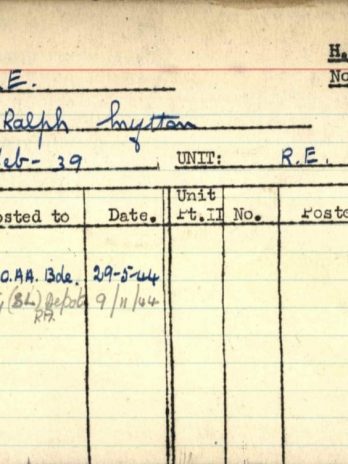 H.
No
.E.
Ralph Lytton
eb - 39 UNIT: R.E.
osted to Date. Unit Pt.II No. Poste
O.AA. Bde. 29-5-44
(SL) Depot 9/11/44
RA.